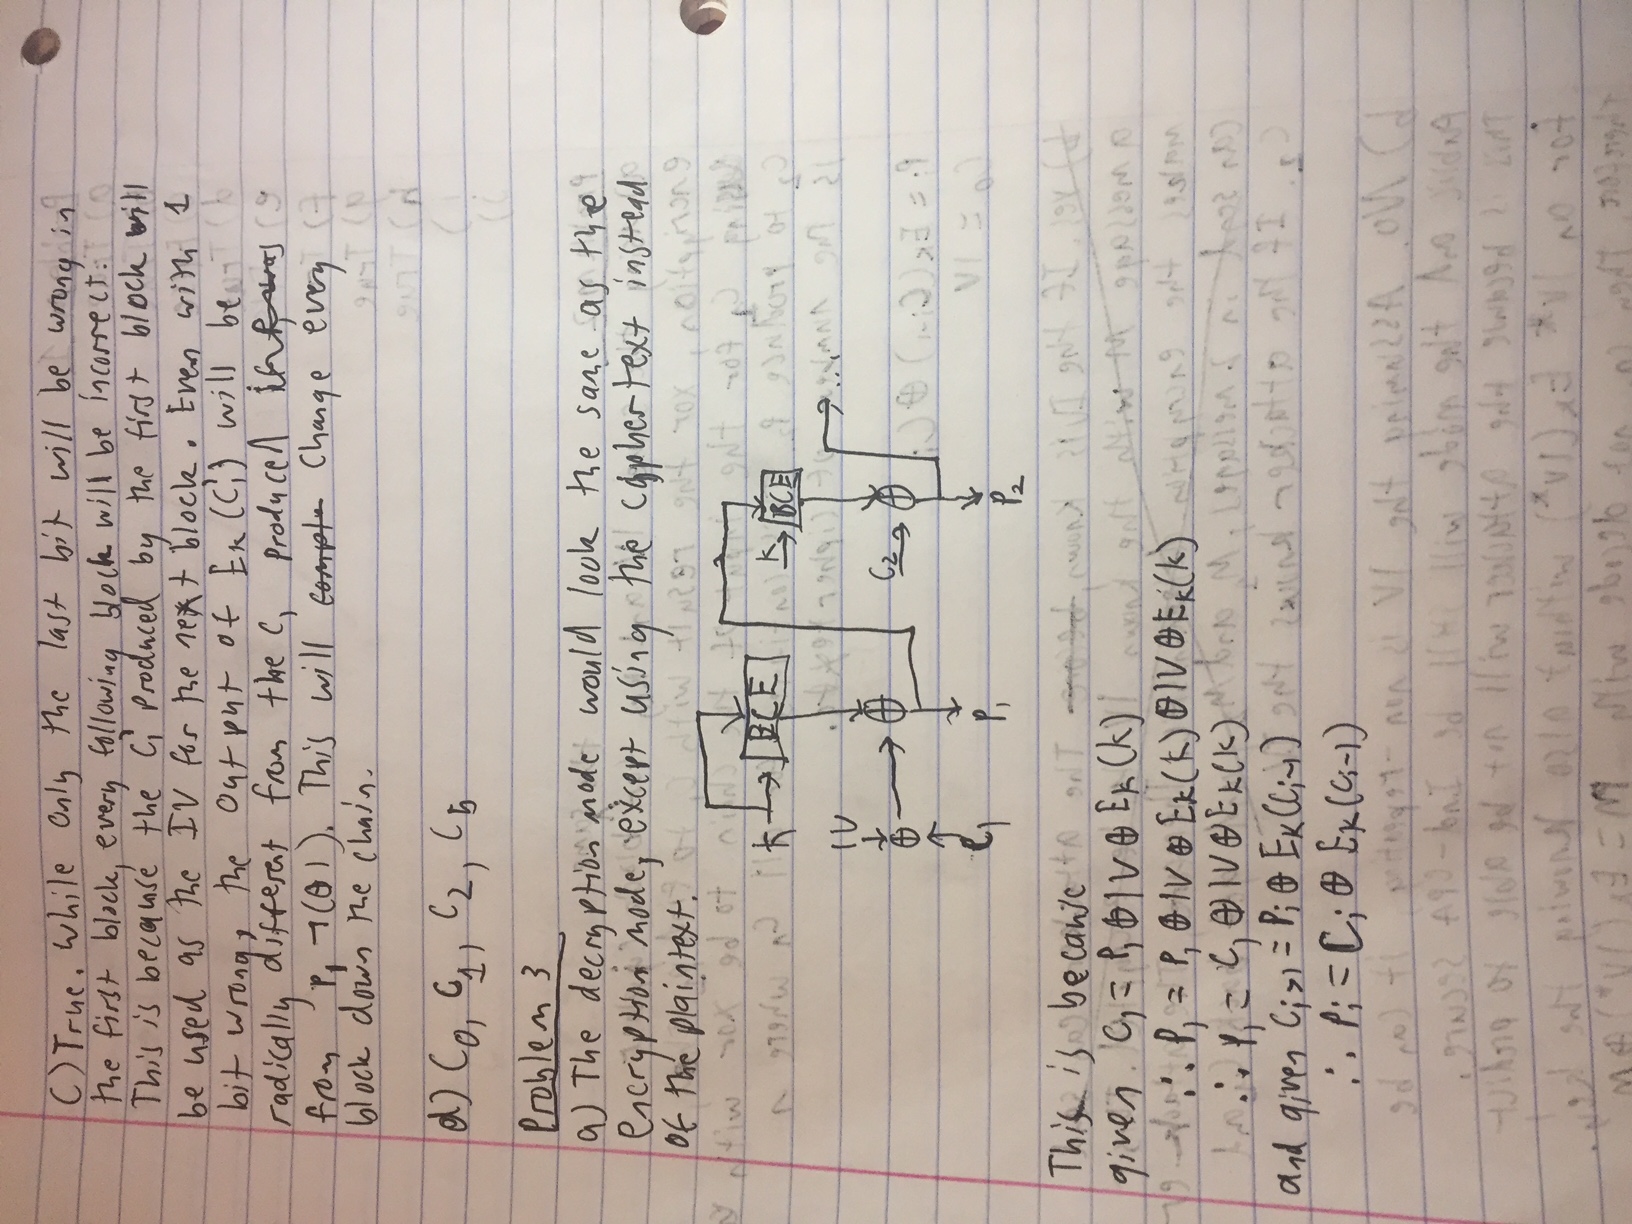 C) True. While only the last bit will be wrong in
the first block, every following block will be incorrect.
This is because the C₁' produced by the first block will
be used as the IV for the next block. Even with 1
bit wrong, the output of Eₖ(C₁') will be
radically different from the C₁ produced
from P₁ ¬(⊕1). This will change every
block down the chain.
d) C₀, C₁, C₂, C₅
Problem 3
a) The decryption mode would look the same as the
encryption mode, except using the cyphertext instead
of the plaintext.
K → BCE K → BCE
IV
⊕ → ⊕ C₂ → ⊕ ...
C₁ P₁ P₂
This is because
given C₁ = P₁ ⊕ IV ⊕ Eₖ(k)
∴ P₁ = P₁ ⊕ IV ⊕ Eₖ(k) ⊕ IV ⊕ Eₖ(k)
∴ P₁ = C₁ ⊕ IV ⊕ Eₖ(k)
and given Cᵢ>₁ = Pᵢ ⊕ Eₖ(Cᵢ₋₁)
∴ Pᵢ = Cᵢ ⊕ Eₖ(Cᵢ₋₁)